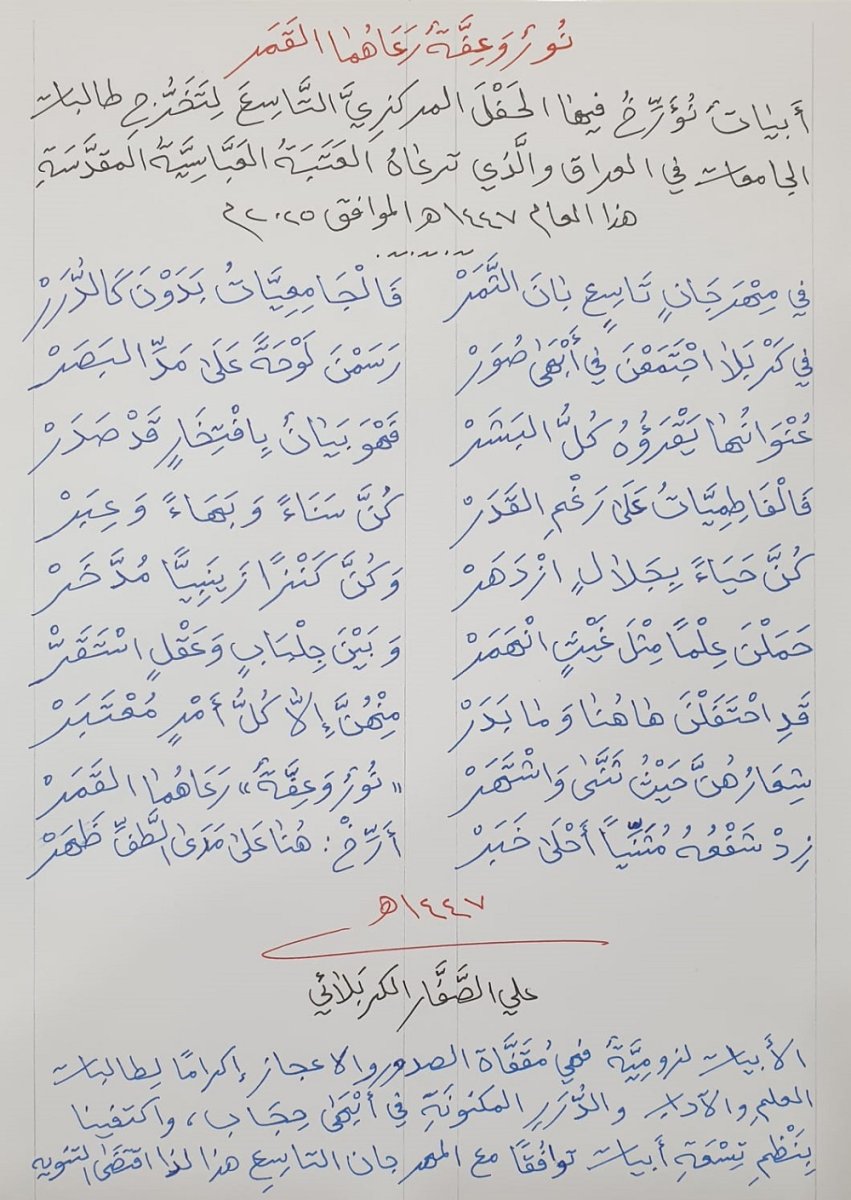 نُورٌ وَعِفَّةٌ رَعَاهُمَا القَمَر
أبياتٌ نُؤَرِّخُ فيها الحَفْلَ المركزيَّ التَّاسِعَ لِتَخَرُّجِ طالبات
الجامعات في العراق والَّذي ترعَاهُ العَتَبَةُ العَبَّاسِيَّةُ المقدَّسَةِ
هذا العام ١٤٤٧هـ الموافق ٢٠٢٥م
في مِهْرَجَانٍ تَاسِعٍ بَانَ الثَّمَرْ فَالْجَامِعِيَّاتُ بَدَوْنَ كَالدُّرَرْ
في كَرْبَلَا اجْتَمَعْنَ في أَبْهَى صُوَرْ رَسَمْنَ لَوْحَةً عَلَى مَدِّ البَصَرْ
عُنْوَانُهَا يَقْرَؤُهُ كُلُّ البَشَرْ فَهْوَ بَيَانٌ بِافْتِخَارٍ قَدْ صَدَرْ
فَالْفَاطِمِيَّاتُ عَلَى رَغْمِ القَدَرْ كُنَّ سَنَاءً وَبَهَاءً وَعِبَرْ
كُنَّ حَيَاءً بِجَلَالٍ ازْدَهَرْ وَكُنَّ كَنْزًا زَيْنَبِيًّا مُدَّخَرْ
حَمَلْنَ عِلْمًا مِثْلَ غَيْثٍ انْهَمَرْ وَبَيْنَ جِلْبَابٍ وَعَقْلٍ اسْتَقَرّْ
قَدِ احْتَفَلْنَ هَاهُنَا وَمَا بَدَرْ مِنْهُنَّ إِلَّا كُلُّ أَمْرٍ مُعْتَبَرْ
شِعَارُهُنَّ حَيْثُ ثَنَّى وَاشْتَهَرْ «نُورٌ وَعِفَّةٌ» رَعَاهُمَا القَمَرْ
زِدْ شَفْعُهُ مُثَنِّيًا أَحْلَى خَبَرْ أَرِّخْ: هُنَا عَلَى مَدَى الطَّفِّ ظَهَرْ
١٤٤٧هـ
علي الصَّفَّار الكربَلائي
الأبيات لزوميَّةٌ فهي مُقَفَّاة الصدور والاعجاز إكرامًا لِطالبات
العلمِ والآداب والدُّرَرِ المكنونَةِ في أَبْهَى حِجَاب، واكتفينا
بِنَظْمِ تِسْعَةِ أبيات توافُقًا مع المهرجان التاسِع هذا لذا اقتضَى التنويه